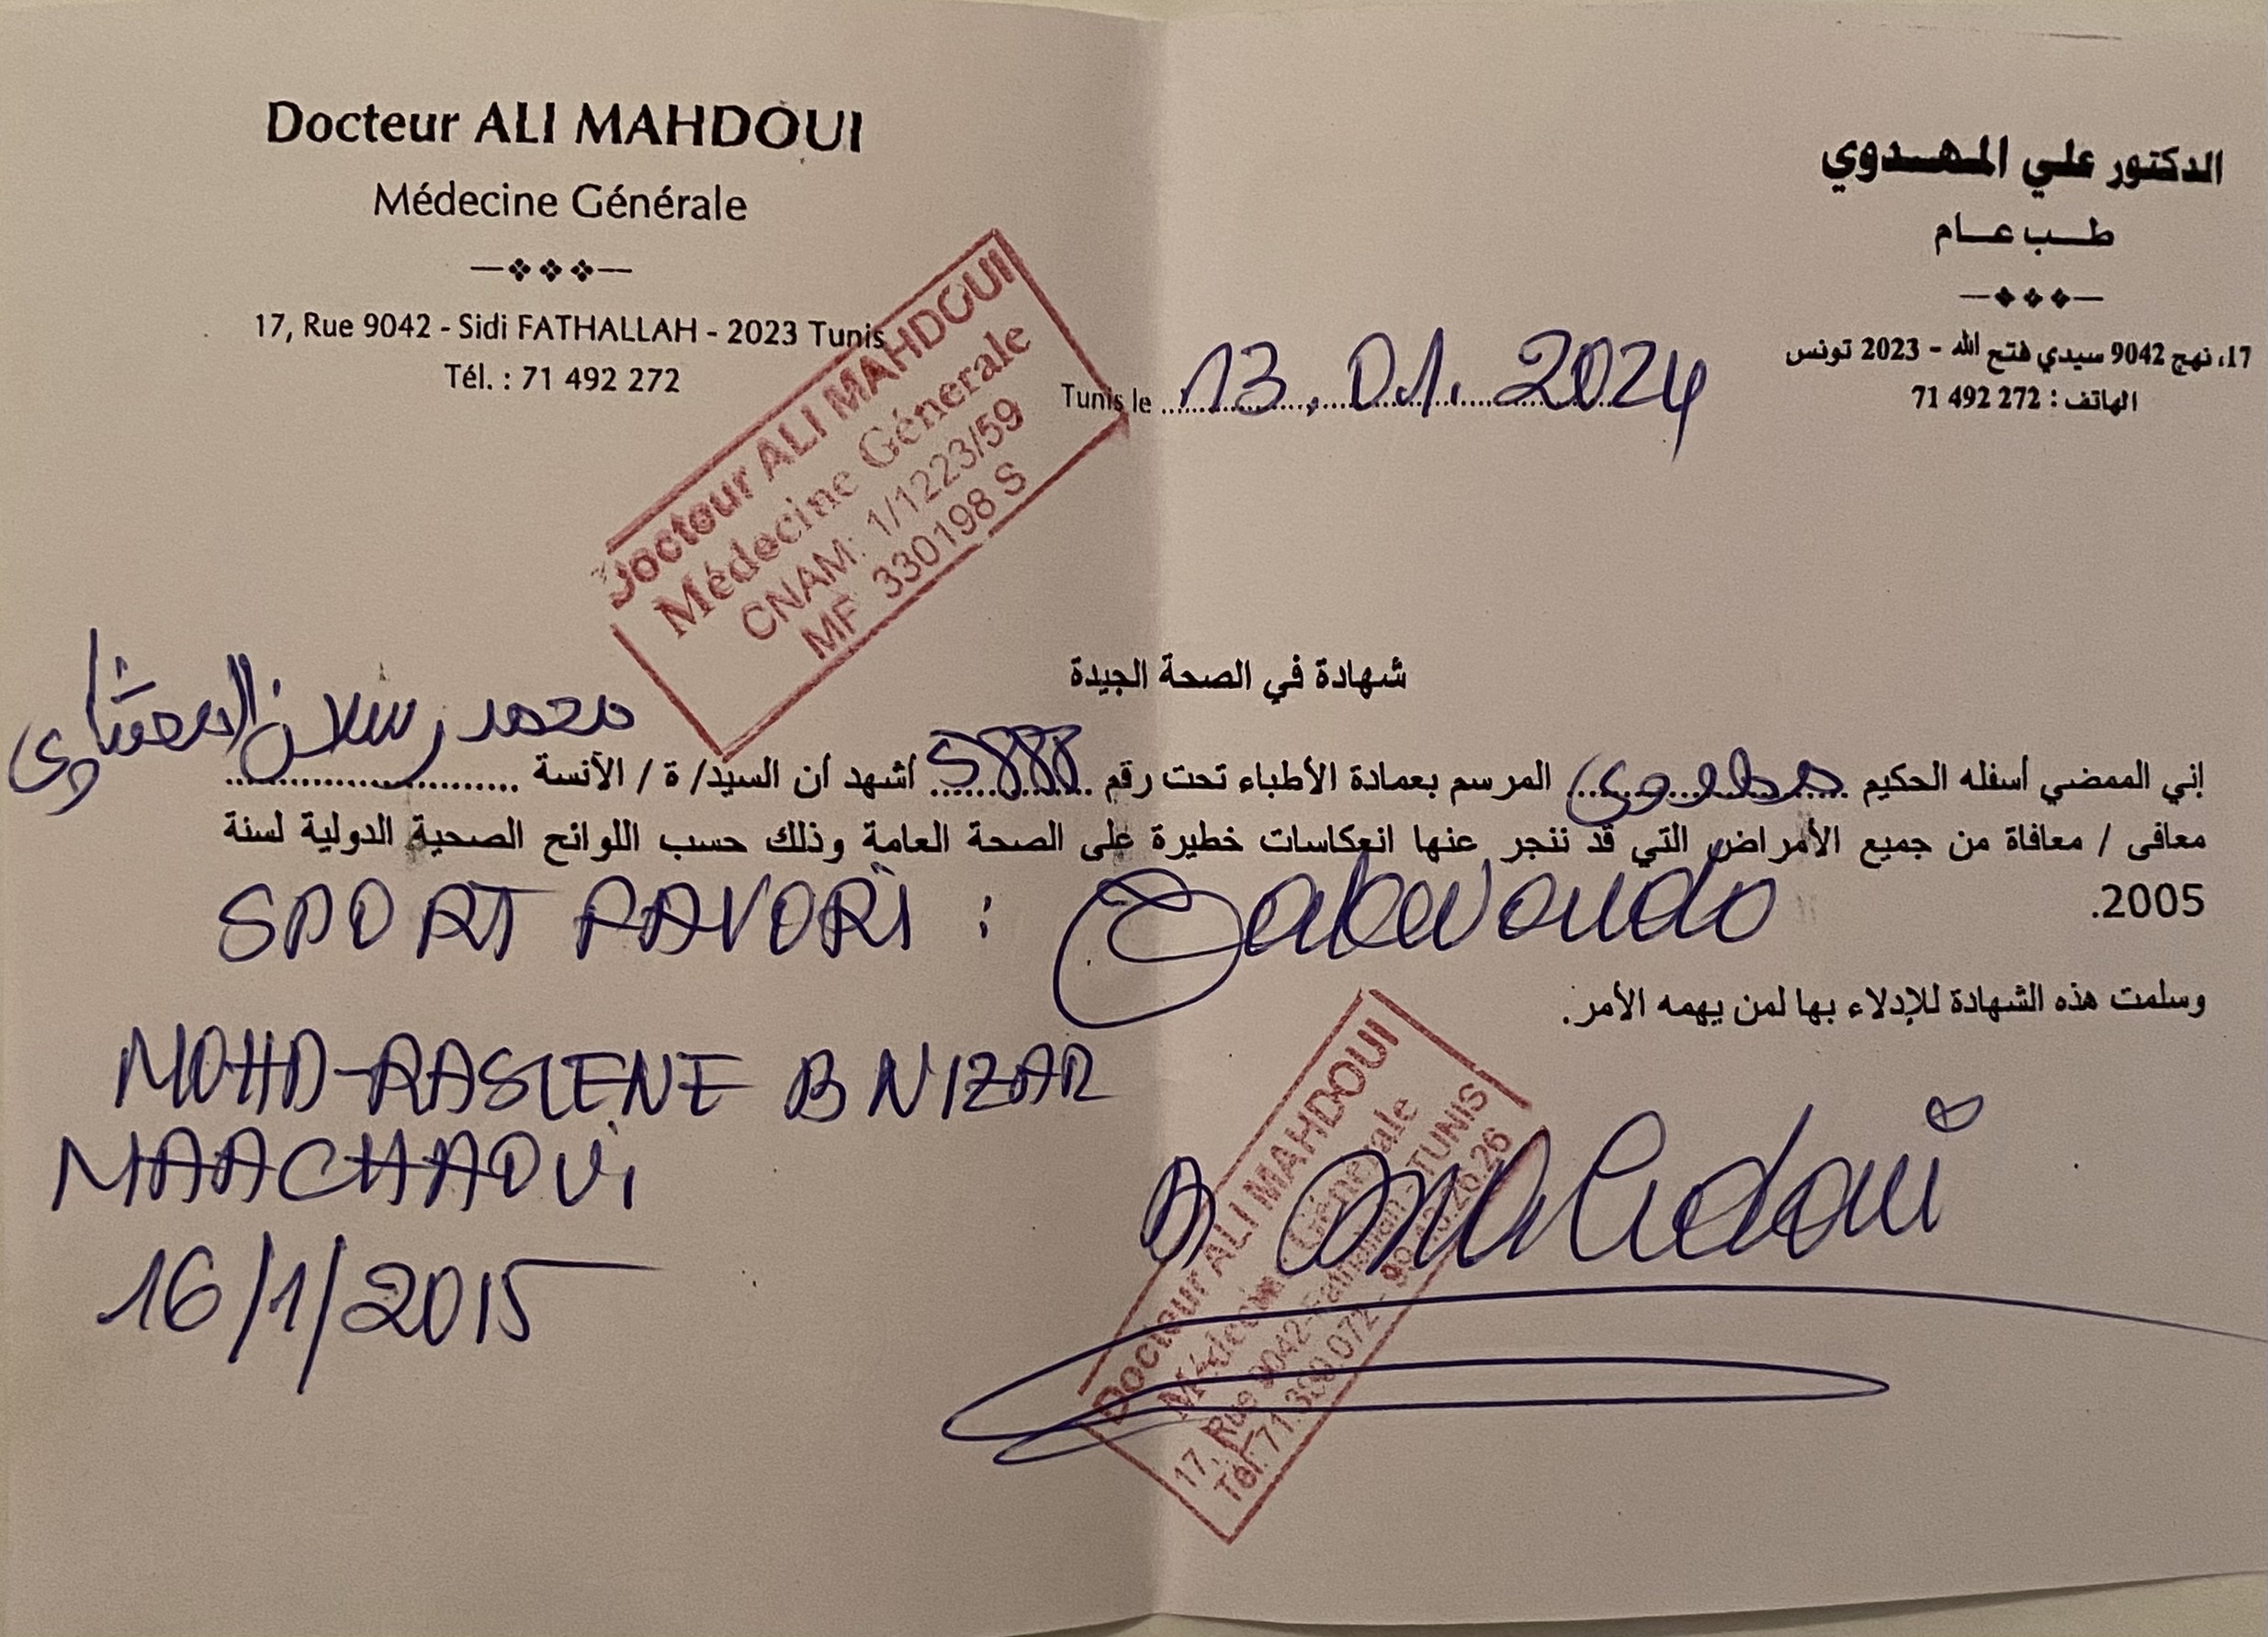 Docteur ALI MAHDOUI
Médecine Générale
17, Rue 9042 - Sidi FATHALLAH - 2023 Tunis
Tél. : 71 492 272
الدكتور علي المهدوي
طب عام
17، نهج 9042 سيدي فتح الله - 2023 تونس
الهاتف : 272 492 71
Docteur ALI MAHDOUI
Médecine Génerale
CNAM: 1/1223/59
MF 330198 S
Tunis le 13.01.2024
شهادة في الصحة الجيدة
إني الممضي أسفله الحكيم مهدوي المرسم بعمادة الأطباء تحت رقم أشهد أن السيد/ ة / الآنسة محمد رسلان المعشاوي
معافى / معافاة من جميع الأمراض التي قد ننجر عنها انعكاسات خطيرة على الصحة العامة وذلك حسب اللوائح الصحية الدولية لسنة
2005.
SPORT FAVORI : Taekwondo
وسلمت هذه الشهادة للإدلاء بها لمن يهمه الأمر.
MOHD-RASLENE B NIZAR
MAACHAOUI
16/1/2015
Mahdoui
Docteur ALI MAHDOUI
Médecine Générale
17, Rue 9042-Fathallah-TUNIS